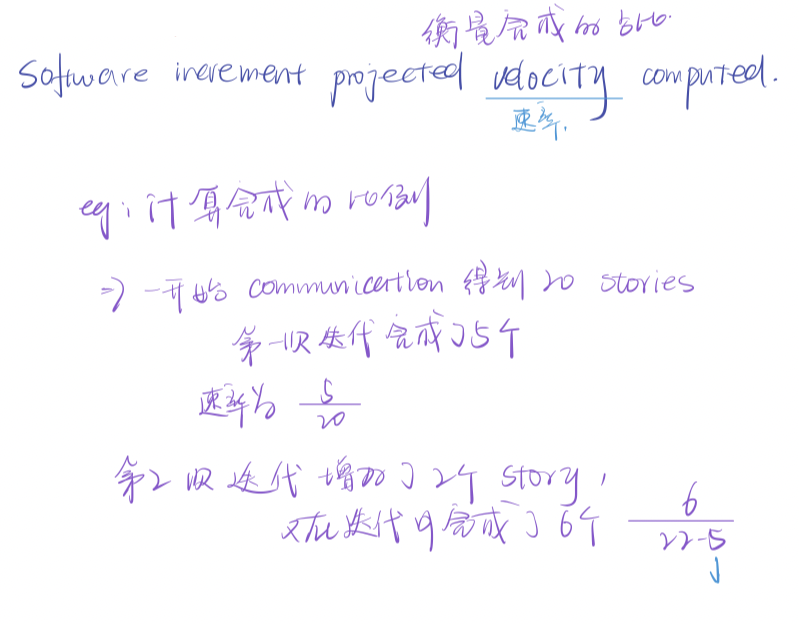 衡量完成的占比.
Software increment projected velocity computed.
速率.
eg: 计算完成的比例
⇒ 一开始 communication 得到 20 stories
第一次迭代完成了5个
速率为 5/20
第2次迭代增加了2个 story,
又在迭代中完成了6个 6/22-5